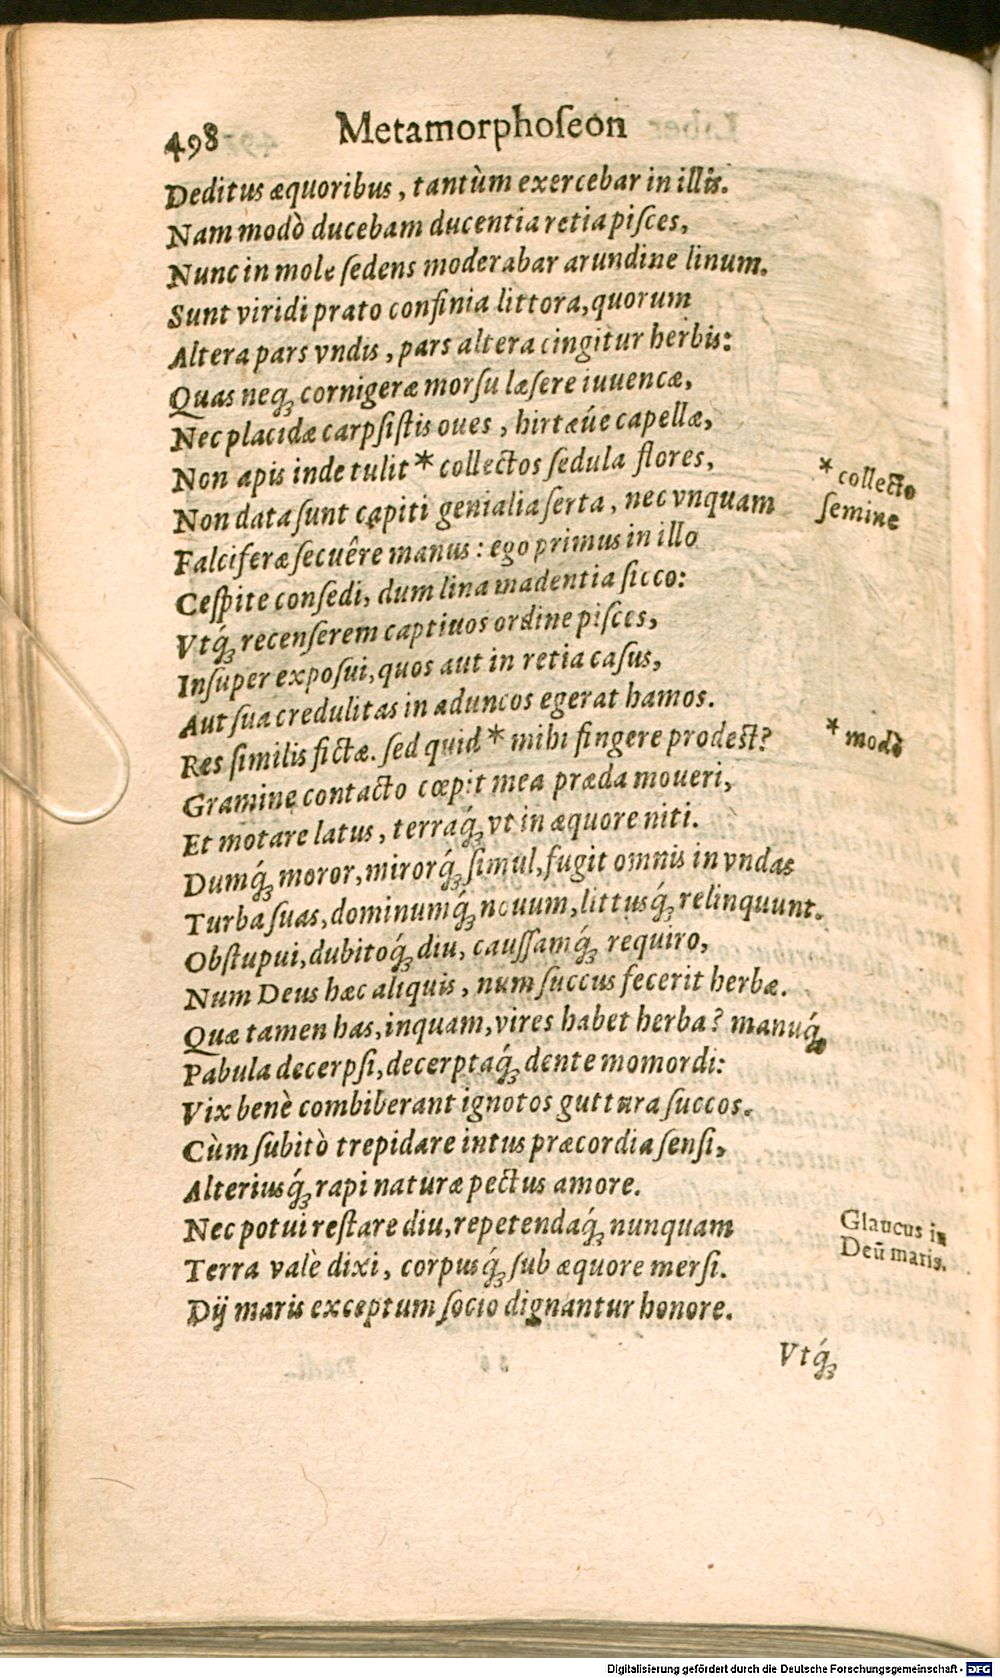 498 Metamorphoſeon
Deditus æquoribus, tantùm exercebar in illis.
Nam modò ducebam ducentia retia piſces,
Nunc in mole ſedens moderabar arundine linum.
Sunt viridi prato confinia littora, quorum
Altera pars vndis, pars altera cingitur herbis:
Quas neq́ꝫ cornigeræ morſu læſere iuuencæ,
Nec placidæ carpſiſtis oues, hirtæúe capellæ,
Non apis inde tulit * collectos ſedula flores,
* collecto
ſemine
Non data ſunt capiti genialia ſerta, nec vnquam
Falciferæ ſecuêre manus: ego primus in illo
Ceſpite conſedi, dum lina madentia ſicco:
Vtq́ꝫ recenſerem captiuos ordine piſces,
Inſuper expoſui, quos aut in retia caſus,
Aut ſua credulitas in aduncos egerat hamos.
Res ſimilis fictæ. ſed quid * mihi fingere prodeſt?
* modò
Gramine contacto cœpit mea præda moueri,
Et motare latus, terraq́ꝫ vt in æquore niti.
Dumq́ꝫ moror, mirorq́ꝫ ſimul, fugit omnis in vndas
Turba ſuas, dominumq́ꝫ nouum, littusq́ꝫ relinquunt.
Obſtupui, dubitoq́ꝫ diu, cauſſamq́ꝫ requiro,
Num Deus hæc aliquis, num ſuccus fecerit herbæ.
Quæ tamen has, inquam, vires habet herba? manuq́ꝫ
Pabula decerpſi, decerptaq́ꝫ dente momordi:
Vix benè combiberant ignotos guttura ſuccos.
Cùm ſubitò trepidare intus præcordia ſenſi,
Alteriusq́ꝫ rapi naturæ pectus amore.
Nec potui reſtare diu, repetendaq́ꝫ nunquam
Glaucus in
Deũ maris.
Terra valè dixi, corpusq́ꝫ ſub æquore merſi.
Dij maris exceptum ſocio dignantur honore.
Vtq́ꝫ
Digitalisierung gefördert durch die Deutsche Forschungsgemeinschaft - DFG